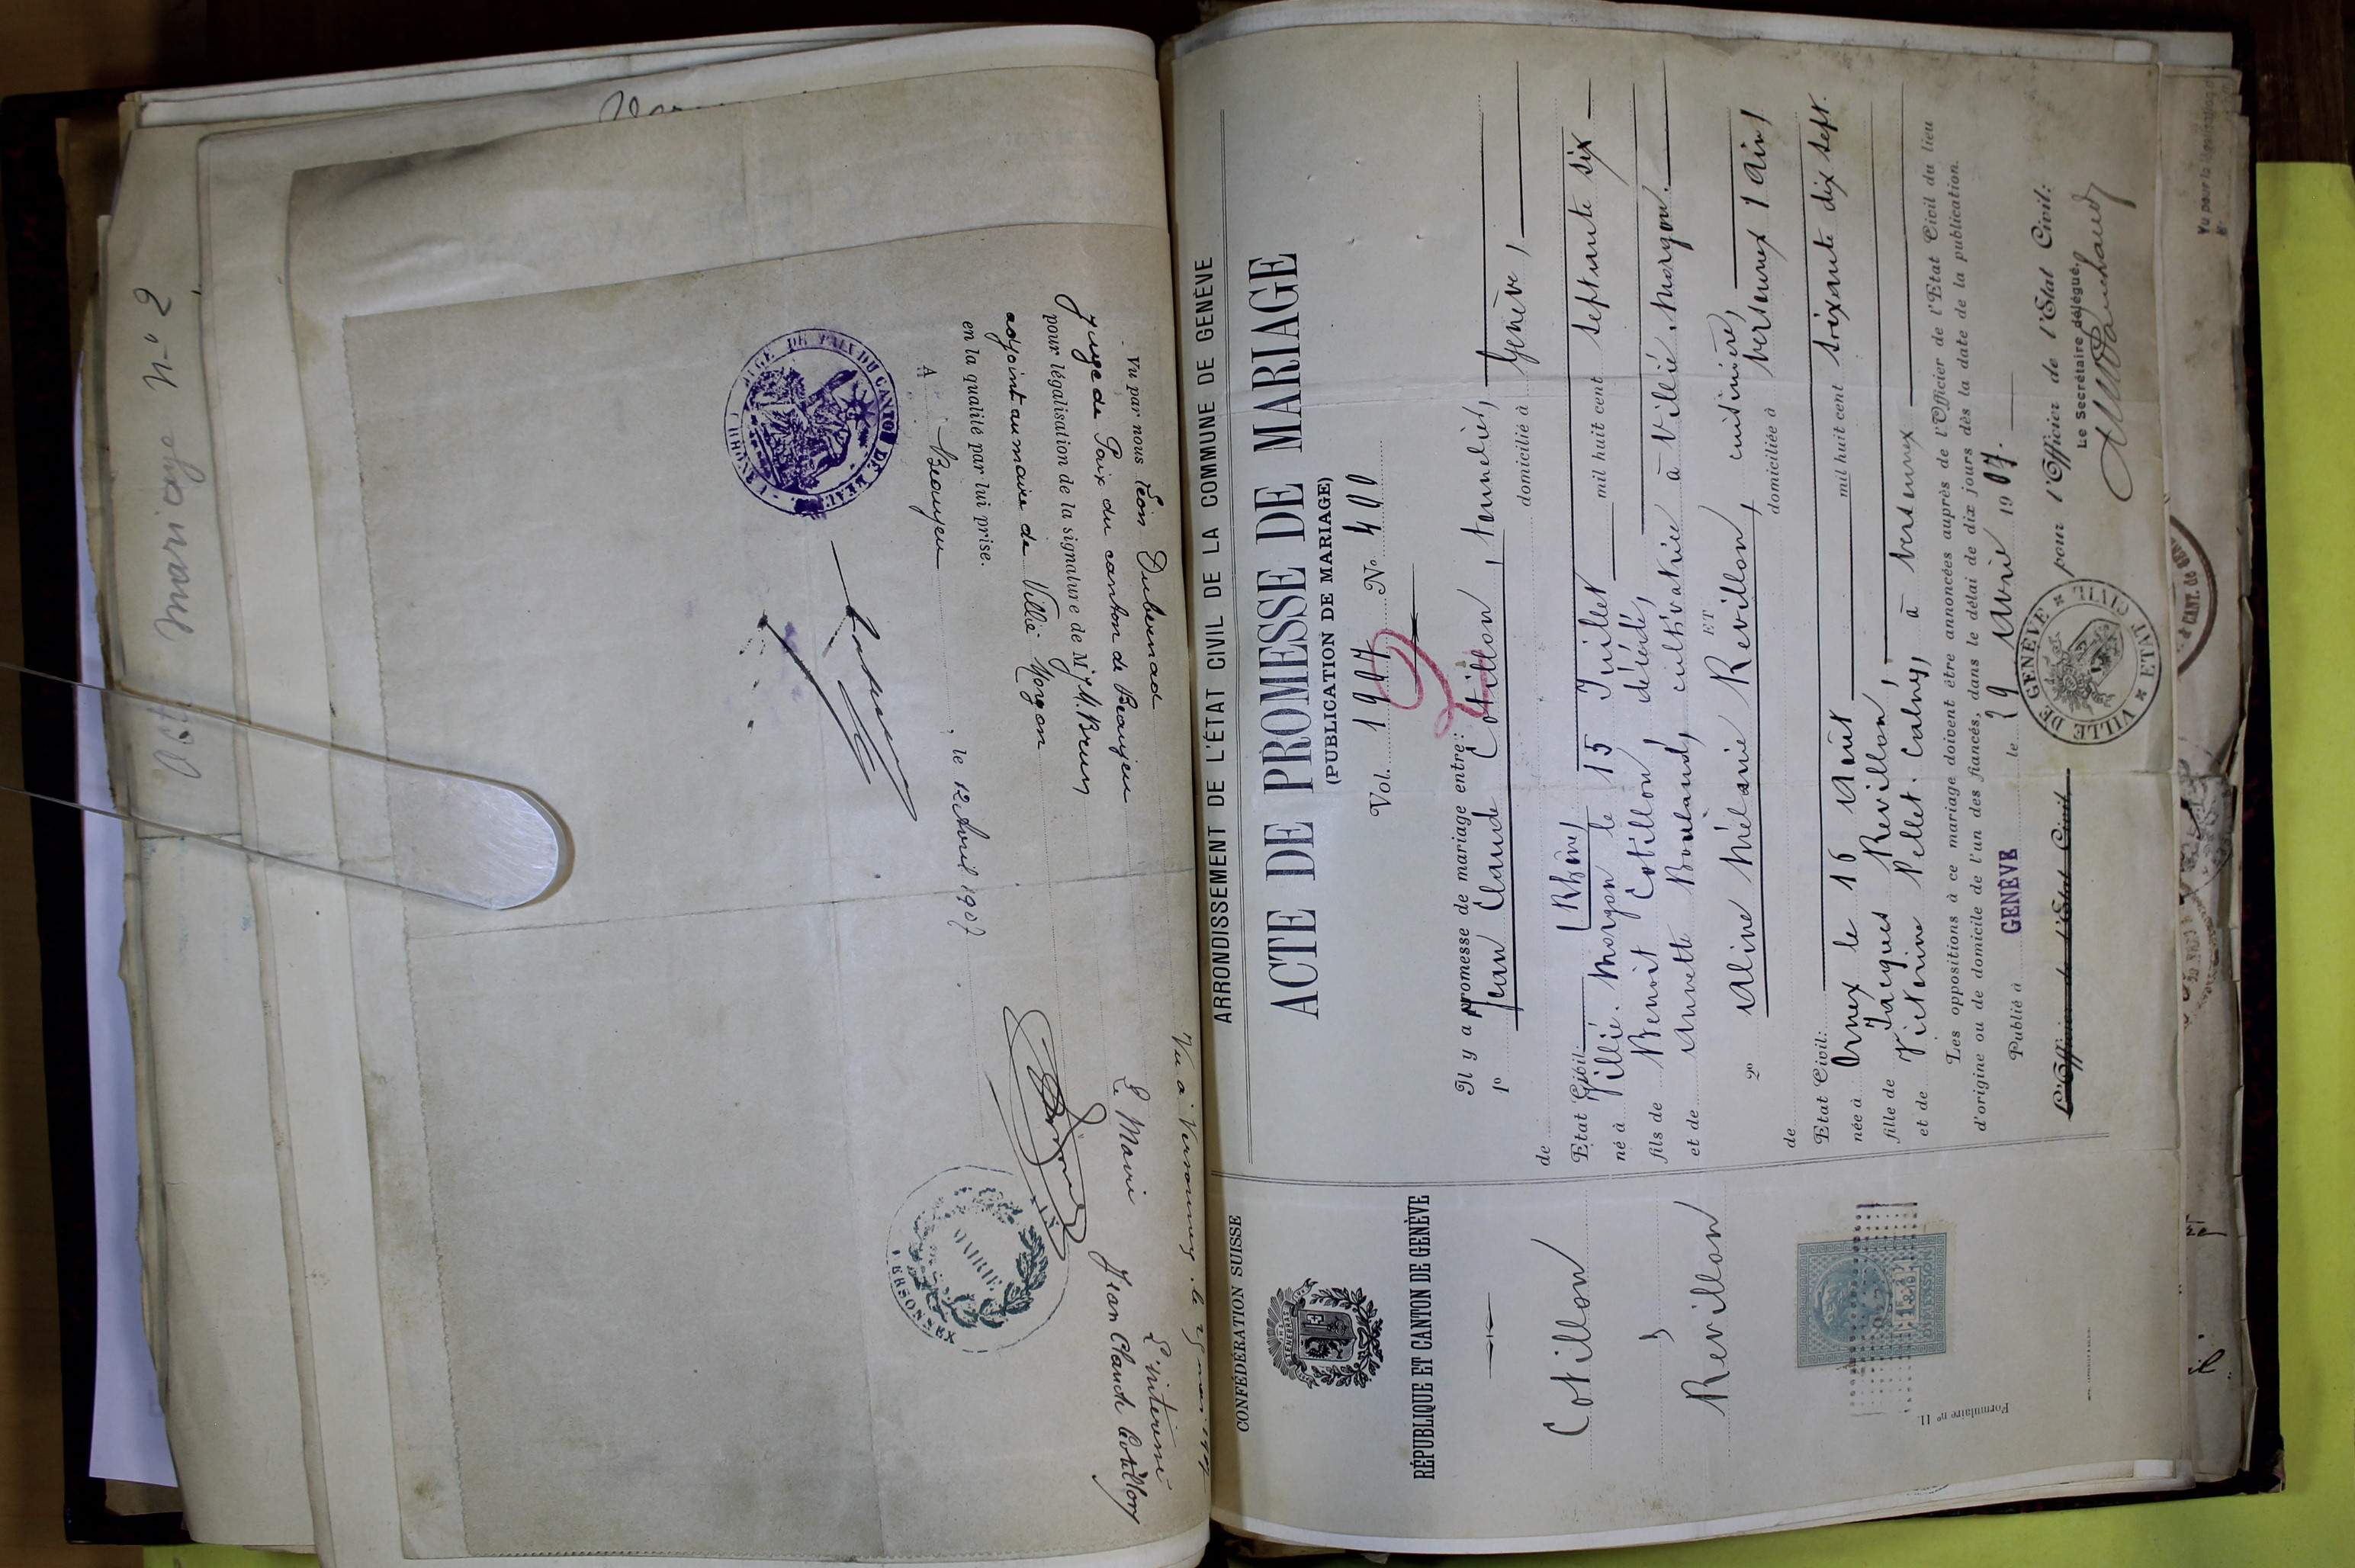 Acte mariage N° 2
Vu par nous Léon Dubernad
Juge de Paix du canton de Beaujeu
pour légalisation de la signature de M. J. M. Brun
adjoint au maire de Villié-Morgon
en la qualité par lui prise.
A Beaujeu, le 12 Avril 1907.
JUGE DE PAIX DU CANTON DE BEAUJEU (RHONE)
Vu à Versonnex, le
L'intéressé
Le Maire Jean Claude Cotillon
MAIRIE
VERSONNEX
CONFÉDÉRATION SUISSE
RÉPUBLIQUE ET CANTON DE GENÈVE
Cotillon
Revillon
Formulaire nº II.
ARRONDISSEMENT DE L'ÉTAT CIVIL DE LA COMMUNE DE GENÈVE
ACTE DE PROMESSE DE MARIAGE
(PUBLICATION DE MARIAGE)
Vol. 1907 No 400
Il y a promesse de mariage entre:
1º Jean Claude Cotillon, tonnelier,
de domicilié à Genève,
Etat Civil: (Rhône)
né à Villié-Morgon le 15 Juillet mil huit cent septante six
fils de Benoit Cotillon, décédé,
et de Annette Bouland, cultivatrice à Villié-Morgon.
ET
2º Aline Mélanie Revillon, cuisinière,
de domiciliée à Versonnex (Ain)
Etat Civil:
née à Ornex le 16 Août mil huit cent soixante dix sept.
fille de Jacques Revillon,
et de Victorine Pellet-Calny, à Versonnex
Les oppositions à ce mariage doivent être annoncées auprès de l'Officier de l'Etat Civil du lieu
d'origine ou de domicile de l'un des fiancés, dans le délai de dix jours dès la date de la publication.
Publié à GENÈVE le 29 Avril 1907.
L'Officier de l'Etat Civil pour l'Officier de l'Etat Civil:
Le Secrétaire délégué,
VILLE DE GENÈVE ★ ETAT CIVIL ★
Vu pour la légalisation